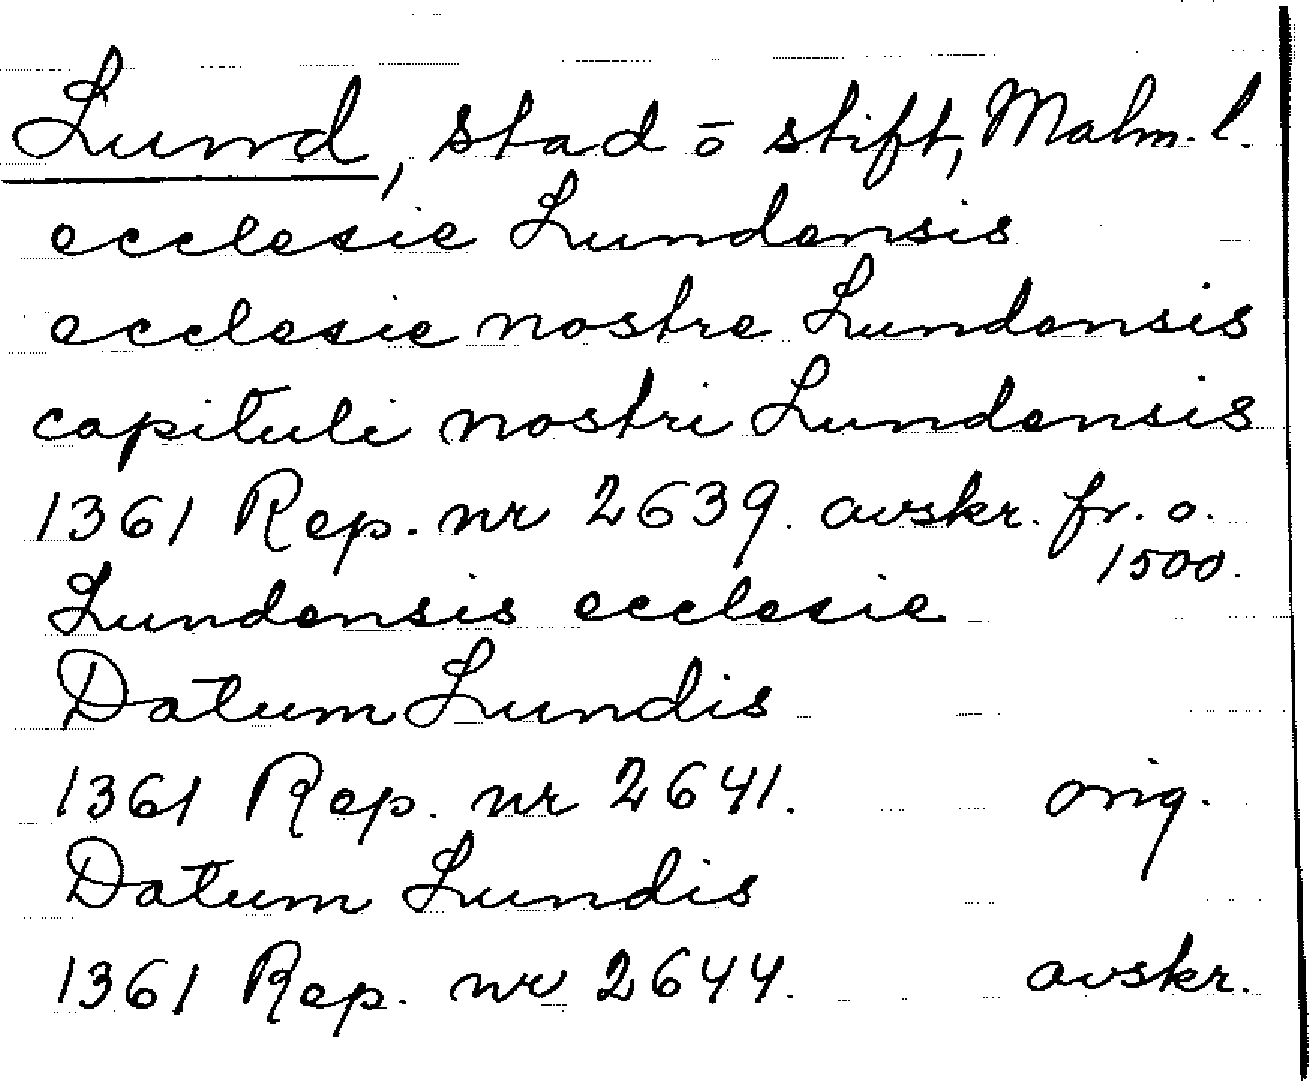 Lund, stad ō stift, Malm. l.
ecclesie Lundensis
ecclesie nostre Lundensis
capituli nostri Lundensis
1361 Rep. nr 2639. avskr. fr. o. 1500.
Lundensis ecclesie
Datum Lundis
1361 Rep. nr 2641. orig.
Datum Lundis
1361 Rep. nr 2644. avskr.